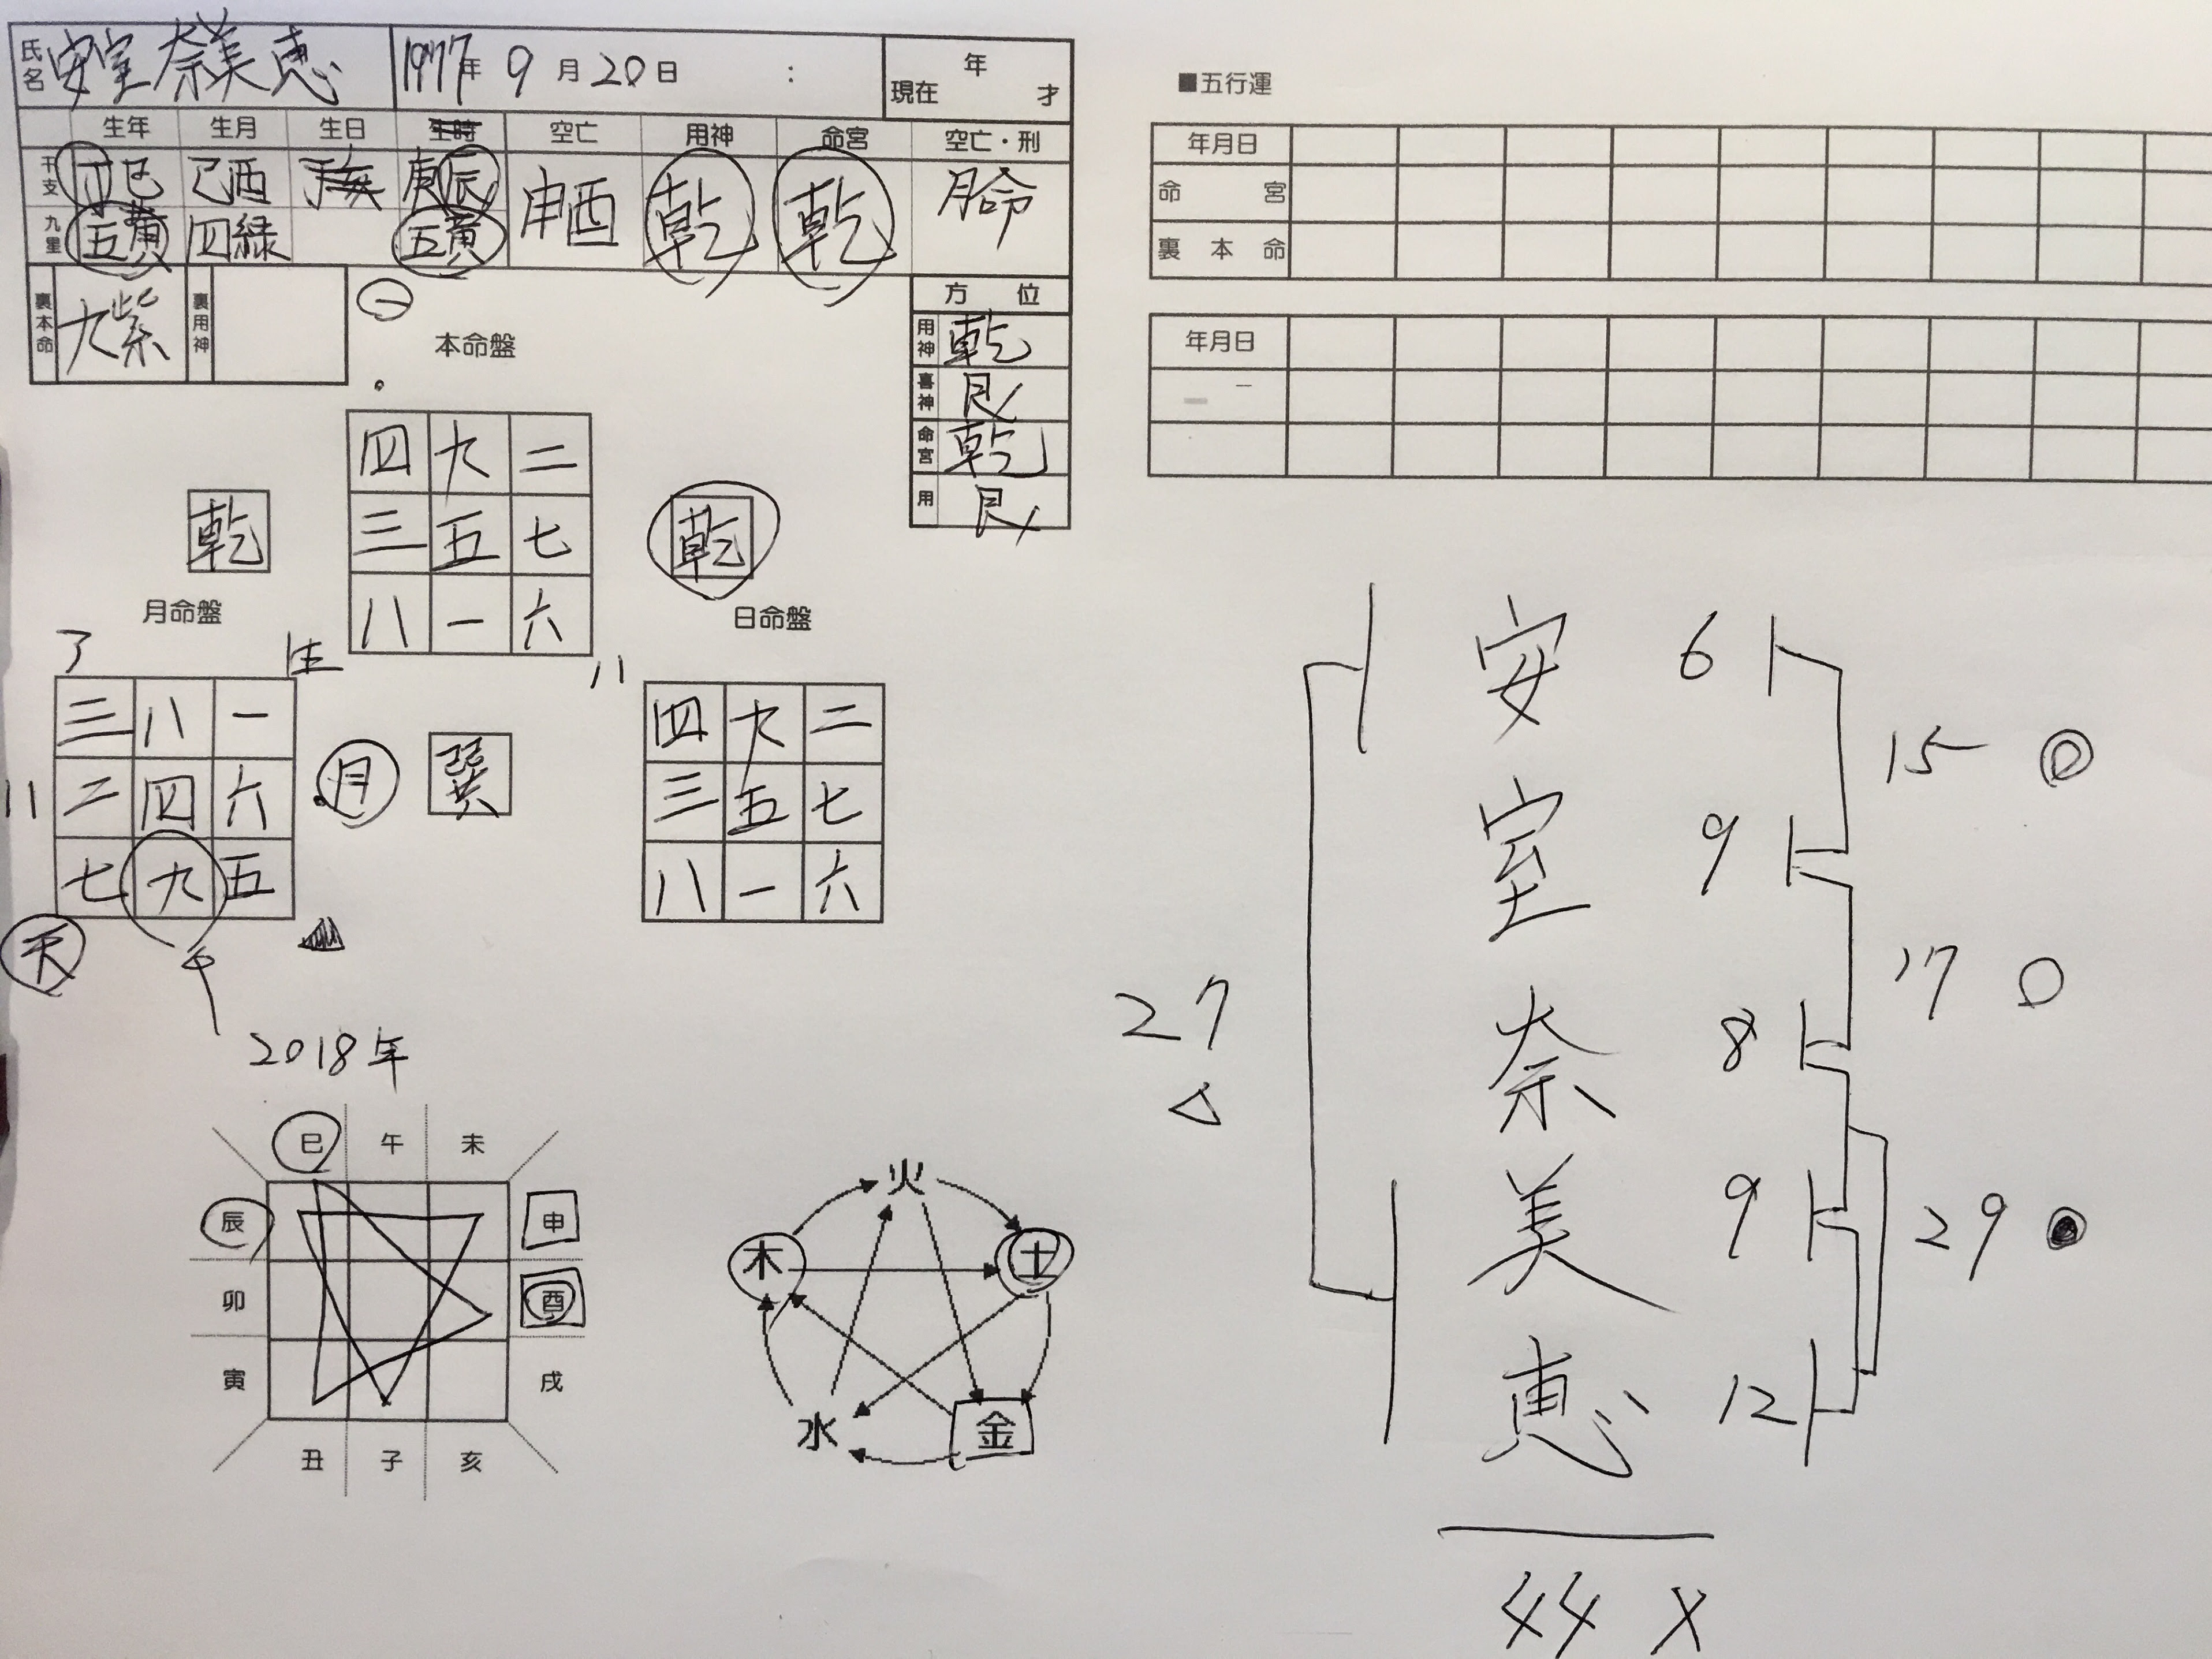 氏名 安室奈美恵 1977年 9月20日 : 年 現在 才
生年 生月 生日 生時 空亡 用神 命宮 空亡・刑
干支 丁巳 己酉 庚辰 申酉 乾 乾 月命
九星 五黄 四緑 五黄
裏本命 九紫 裏用神
一
本命盤
方位
用神 乾
喜神 艮
命宮 乾
用 艮
四 九 二
三 五 七
八 一 六
乾
乾
月命盤
日命盤
了 生
八
三 八 一
二 四 六
七 九 五
八
月
巽
天
四 九 二
三 五 七
八 一 六
2018年
巳 午 未
辰 申
卯 酉
寅 戌
丑 子 亥
火
木 土
水 金
■五行運
年月日
命宮
裏本命
年月日
安 6
15 ◎
室 9
17 ○
奈 8
27 △
美 9
29 ●
恵 12
44 X